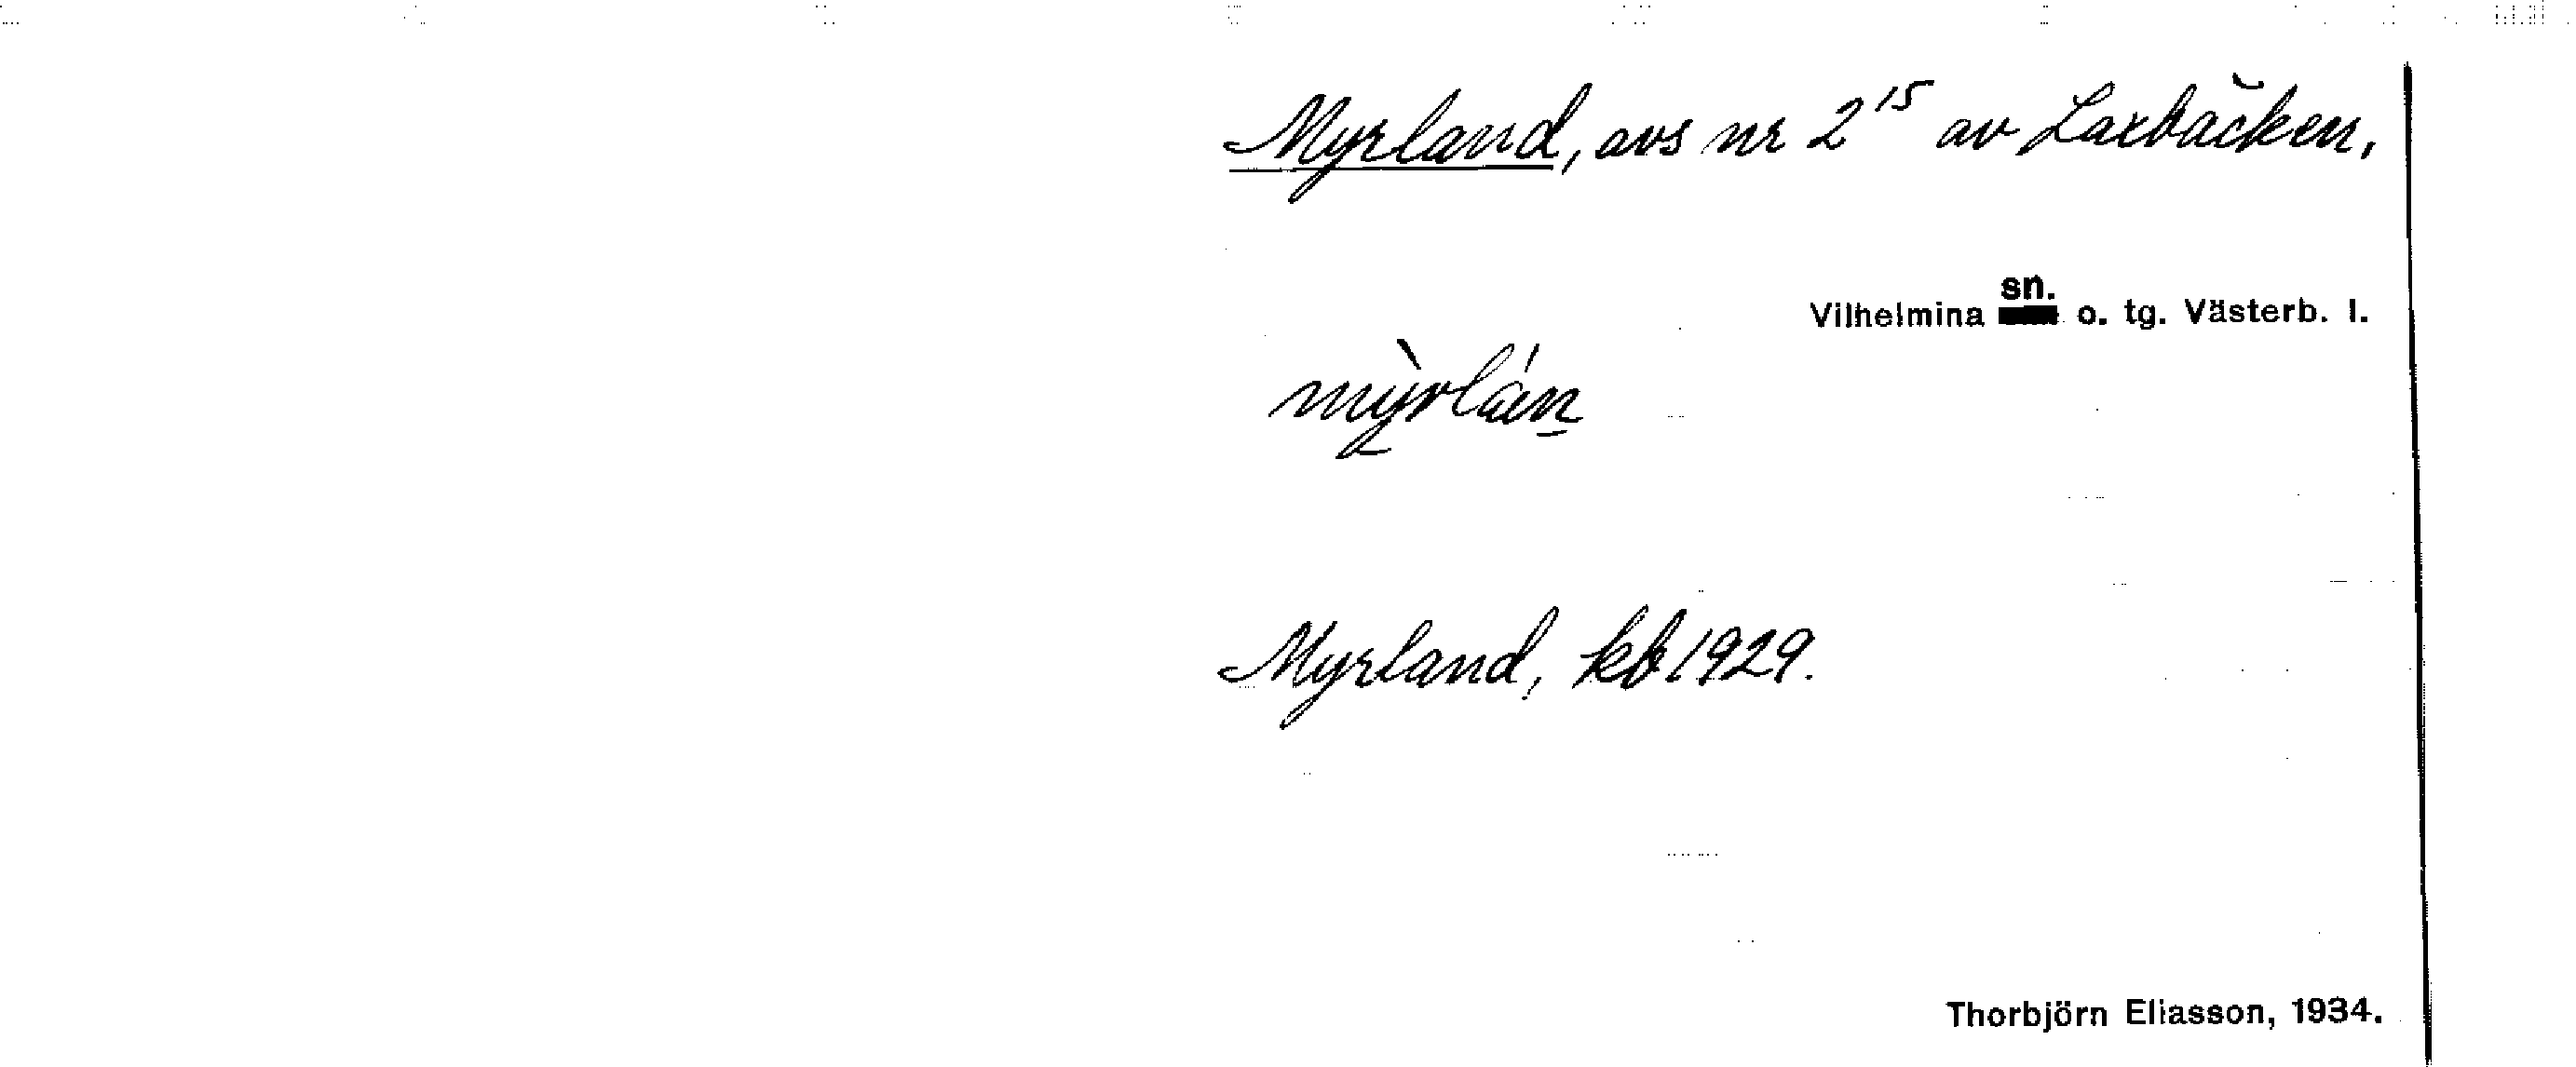 Myrland, avs nr 2¹⁵ av Laxbäcken,
Vilhelmina sn. o. tg. Västerb. l.
mỳrlán
Myrland, kb 1929.
Thorbjörn Eliasson, 1934.